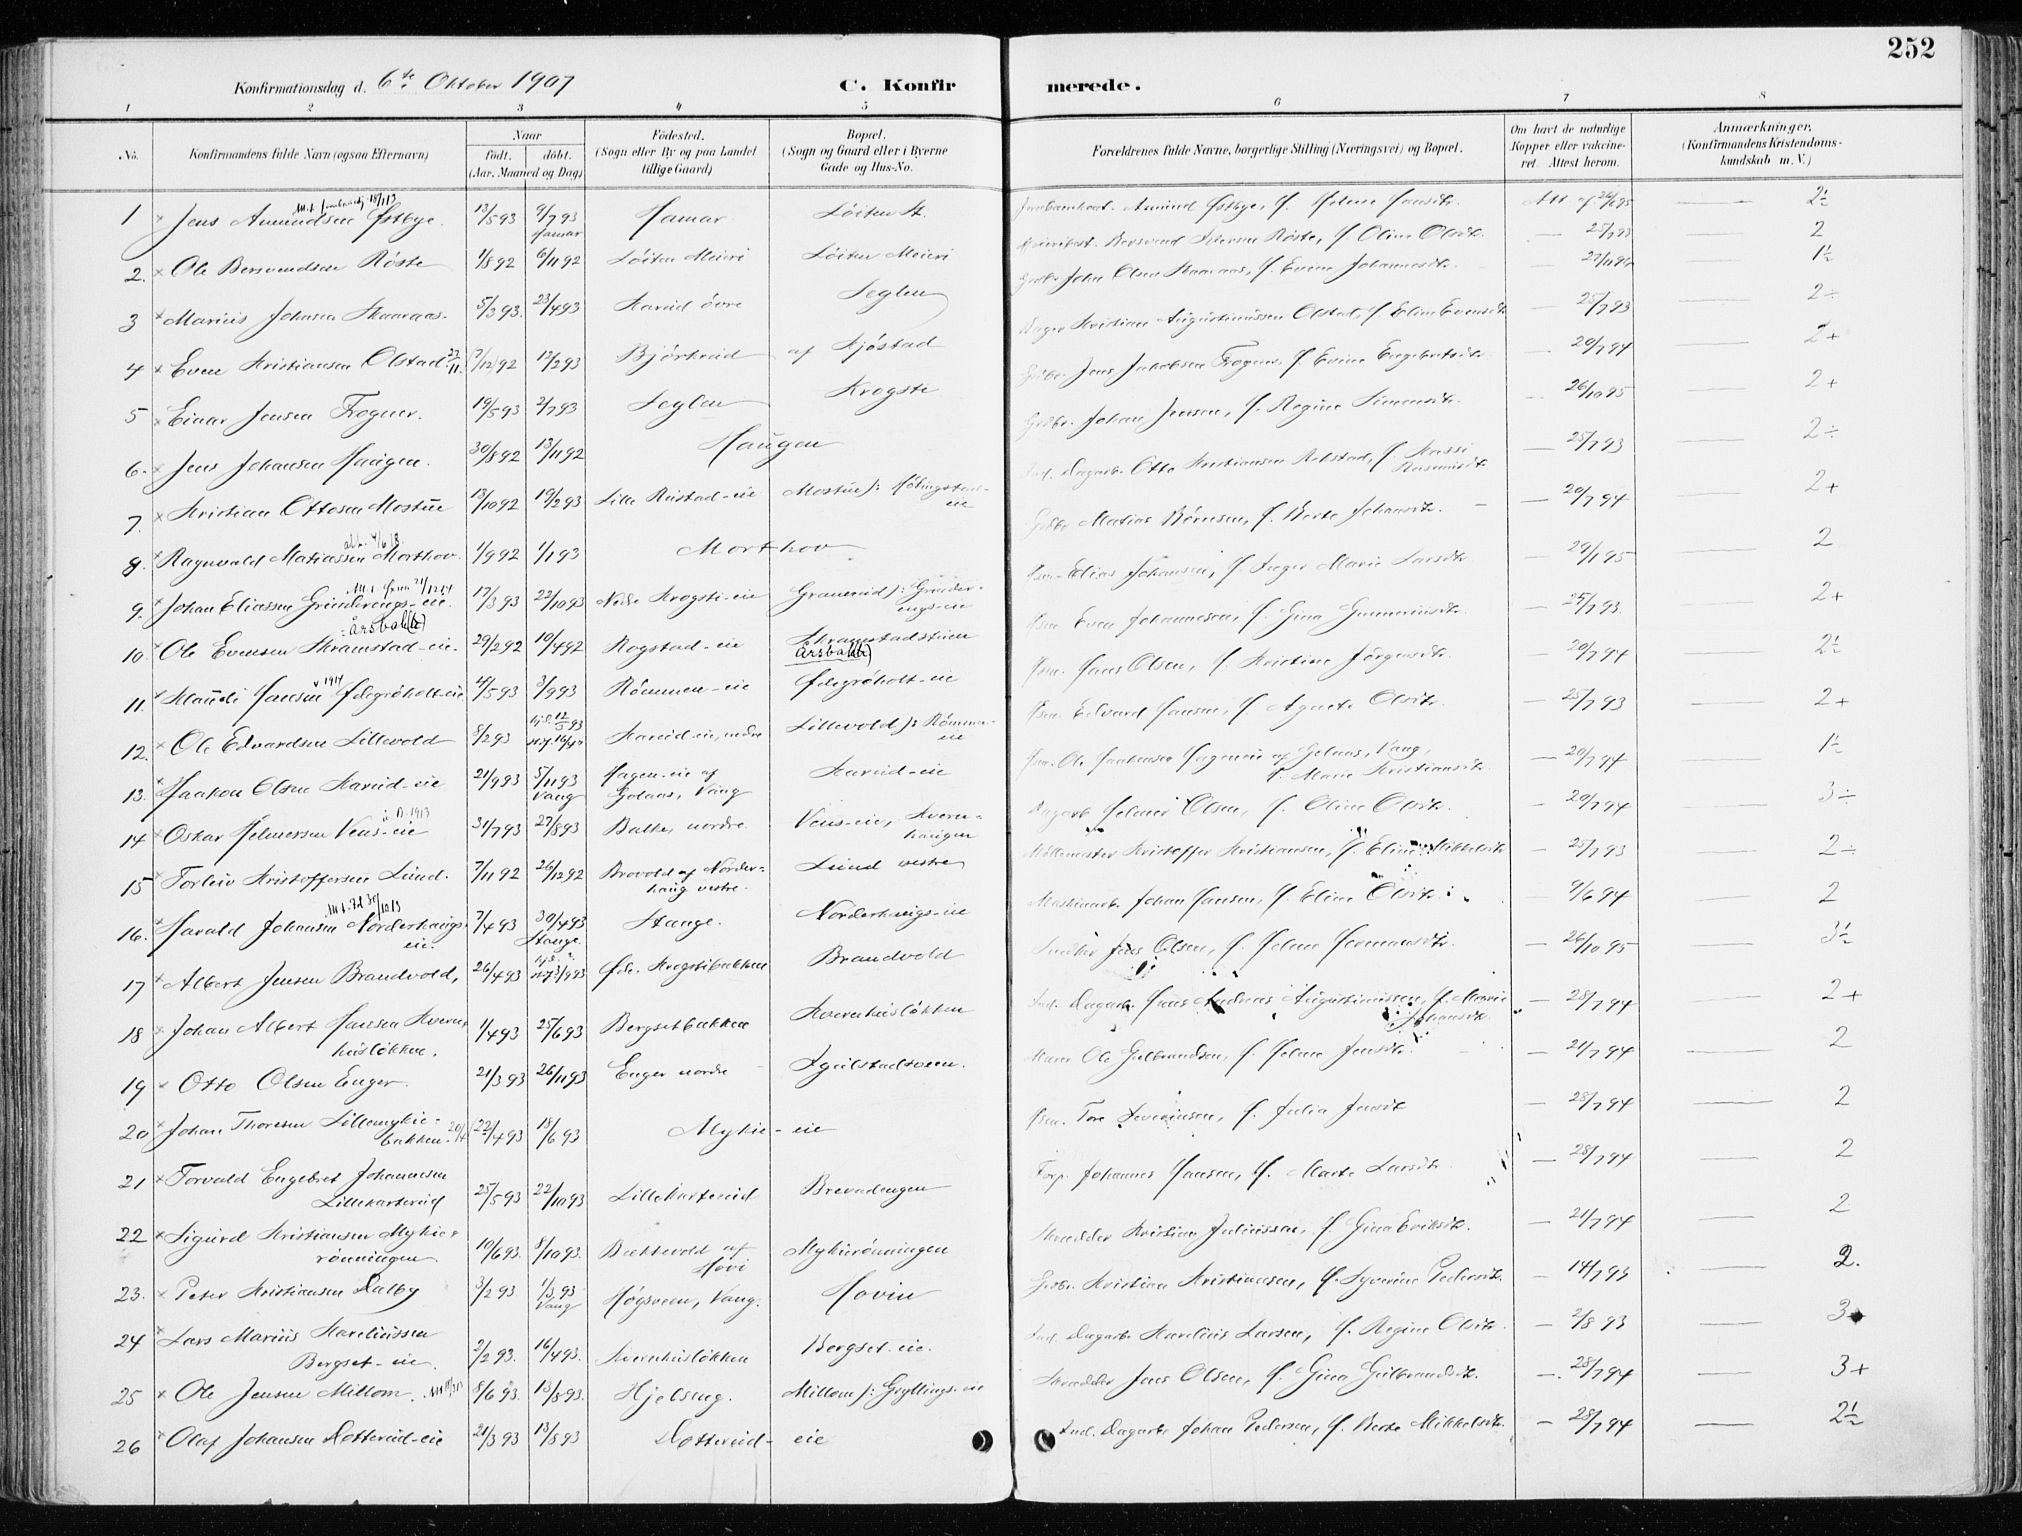 252
Konfirmationsdag d. 6te Oktober 1907
C. Konfirmerede.
1 2 3 4 5 6 7 8
No.
Konfirmandens fulde Navn (ogsaa Efternavn)
Naar
födt. döbt.
(Aar, Maaned og Dag)
Födested.
(Sogn eller By og paa Landet
tillige Gaard)
Bopæl.
(Sogn og Gaard eller i Byerne
Gade og Hus-No.
Forældrenes fulde Navne, borgerlige Stilling (Næringsvei) og Bopæl.
Om havt de naturlige
Kopper eller vakcineret. Attest herom.
Anmærkninger.
(Konfirmandens Kristendomskundskab m. V.)
1 Jens Amundsen Østbye. 13/5 93 9/7 93 Hamar Hamar Löiten St. Amund Østbye, f. Helene Hansdtr. Att. af 2½
2. Ole Bersvendsen Röste 1/8 92 6/11 92 Löiten Meieri Löiten Meieri Bersvend Iversen Röste, f. Oline Olsdtr. — 25/7 93 — 2
3 Marius Johnsen Skaaraas. 5/3 93. 23/4 93 Karud övre Seglen Grdbr. John Olsen Skaaraas, f. Evine Johannesdtr. — 1½
4 Even Kristiansen Olstad. 7/12 92 12/2 93 Björkerud af Kjöstad Kristian Augustinussen Olstad, f. Eline Evensdtr. — 25/7 93 — 2÷
5 Einar Jensen Frogner. 19/5 93 2/7 93 Seglen Krogsti Grdbr. Jens Jakobsen Frogner, f. Evine Engebretsdtr. — 20/7 94 — 2+
6. Jens Johansen Haugen. 30/8 92 13/11 92 Haugen Grdbr. Johan Jensen, f. Regine Simensdtr. — 26/10 95 — 2+
7. Kristian Ottosen Mostue 13/10 92 19/2 93 Lille Rustad-eie Mostue Ind. Dagarb. Otto Kristiansen — 25/7 93 — 2÷
8. Ragnvald Matiassen Morthov. 1/9 92 1/1 93 Morthov Grdbr. Matias Börresen, f. Berte Johansdtr. — 20/7 94 — 2+
9. Johan Eliassen Grinderengs-eie. 17/3 93 22/10 93 Nedre Krogsti-eie Granerud ): Grinderengs-eie Elias Johansen, f. Inger Marie Larsdtr. — 29/1 95 — 2
10. Ole Evensen Skramstad-eie. Årsbak(k) 29/2 92 10/4 92 Rogstad-eie Skramstadstuen Årsbak(k) Even Johannesen, f. Gina Gunneriusdtr. — 25/7 93. — 2+
11. Klaudi Hansen 1914 4/5 93 3/9 93 Römmen-eie Hans Olsen, f. Kristine Jörgensdtr. — 20/7 94 — 2½
12. Ole Edvardsen Lillevold 8/2 93 Karud-eie, nedre Lillevold ): Römmen-eie Edvard Hansen, f. Agnete Olsdtr. — 25/7 93 — 2+
13. Haakon Olsen Karud-eie 21/9 93 5/11 93 Vang Hagen-eie af Gjelaas, Vang Karud-eie Ole Haakensen af Gjelaas, Vang, f. Marie Kristiansdtr. — 20/7 94 — 1½
14 Oskar Helmersen Vens-eie 31/7 93 27/8 93 Balke, nordre Vens-eie, Kvernhaugen Dagarb. Helmer Olsen, f. Oline Olsdtr. — 20/7 94 — 3÷
15 Torleiv Kristoffersen Lund. 7/11 92 26/12 92 Brovold af Norderhaug vestre. Lund vestre Möllemester Kristoffer Kristiansen, f. Eline Mikkelsdtr. — 25/7 93 — 2÷
16. Harald Johansen Norderhaugs-eie. 7/4 93 30/4 93 Stange Stange. Norderhaugs-eie Maskinarb. Johan Hansen, f. Eline Olsdtr. — 9/6 94 — 2
17 Albert Jensen Brandvold, 26/4 93 Krogstibakken Brandvold Snedker Jens Olsen, f. Helene Hermansdtr. — 26/10 95 — 3½
18 Johan Albert Hansen Kvernhuslökken. 1/4 93 25/6 93 Bergsetbakken Kvernhuslökken Ind. Dagarb. Hans Andreas Augustinussen, f. Marie Johansdtr. — 28/7 94 — 2+
19 Otto Olsen Enger. 21/3 93 26/11 93 Enger nordre Igulstadsveen. Murer Ole Gulbrandsen, f. Helene Jensdtr. — 21/7 94 — 2
20 Johan Thoresen Lillemykiebakken. 22/4 93 18/6 93 Mykie-eie Tore Severinsen, f. Julia Jensdtr. — 28/7 94 — 2
21 Torvald Engebret Johannesen Lillekarterud 25/5 93 22/10 93 Lillekarterud Brevadengen Forp. Johannes Hansen, f. Marte Larsdtr. — 28/7 94 — 2
22 Sigurd Kristiansen Mykierönningen. 10/6 93. 8/10 93. Bakkevold af Hovi Mykierönningen Skrædder Kristian Juliussen, f. Gina Eriksdtr. — 21/7 94 — 2
23. Peter Kristiansen Dalby 3/2 93 1/5 93 Vang Högsveen, Vang. Hovin Grdbr. Kristian Kristiansen, f. Syverine Pedersdtr. — 14/7 93 — 2.
24 Lars Marius Kareliussen Bergset-eie. 2/2 93. 16/4 93. Kvernhuslökken Bergset-eie. Ind. Dagarb. Karelius Larsen, f. Regine Olsdtr. — 2/8 93 — 3
25 Ole Jensen Millom. 8/6 93. 13/8 93. Hjelsug. Millom ): Gryllings-eie Skrædder Jens Olsen, f. Gina Gulbrandsdtr. — 28/7 94 — 3+
26 Olaf Johansen Dotterud-eie 21/3 93 13/8 93 Dotterud-eie Ind. Dagarb. Johan Pedersen, f. Berte Mikkelsdtr. — 28/7 94 — 2½